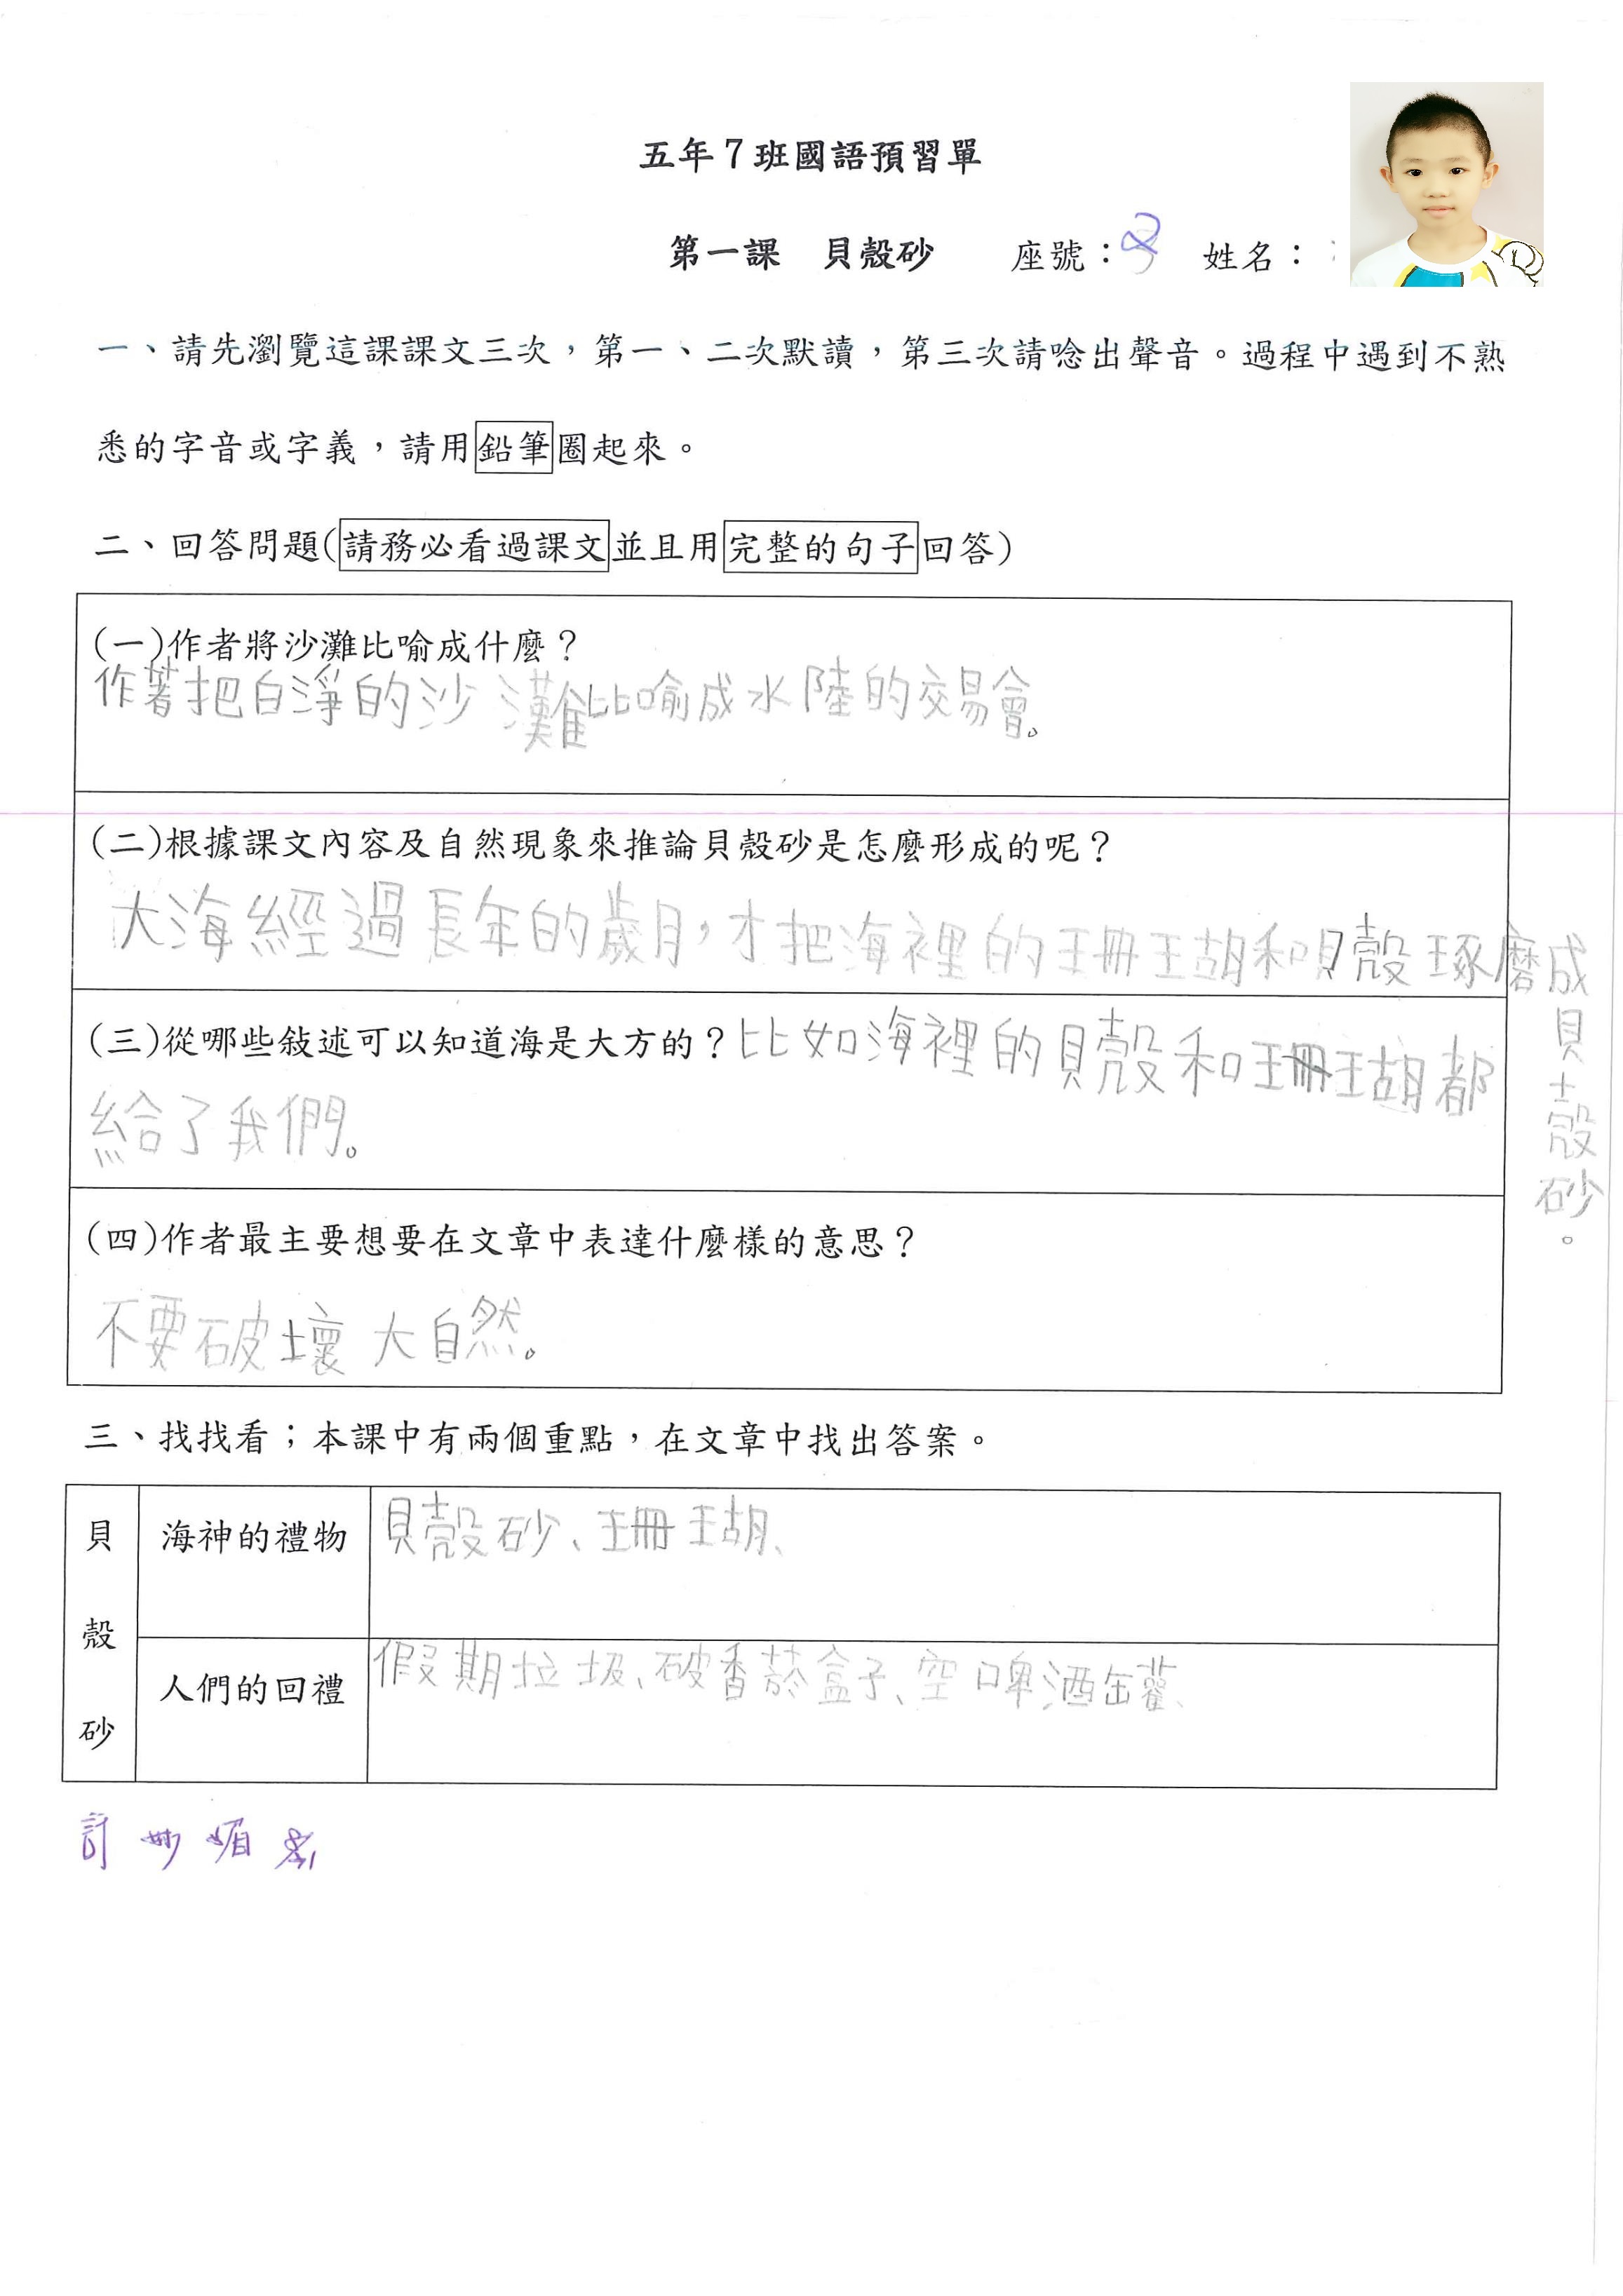 五年7班國語預習單
第一課　貝殼砂　座號：2　姓名：
一、請先瀏覽這課課文三次，第一、二次默讀，第三次請唸出聲音。過程中遇到不熟
悉的字音或字義，請用鉛筆圈起來。
二、回答問題(請務必看過課文並且用完整的句子回答)
(一)作者將沙灘比喻成什麼？
作著把白淨的沙灘比喻成水陸的交易會。
(二)根據課文內容及自然現象來推論貝殼砂是怎麼形成的呢？
大海經過長年的歲月，才把海裡的珊瑚和貝殼琢磨成
貝殼砂。
(三)從哪些敍述可以知道海是大方的？比如海裡的貝殼和珊瑚都
給了我們。
(四)作者最主要想要在文章中表達什麼樣的意思？
不要破壞大自然。
三、找找看；本課中有兩個重點，在文章中找出答案。
貝殼砂
海神的禮物　貝殼砂、珊瑚、
人們的回禮　假期垃圾、破香菸盒子、空啤酒缶罐、
妙媚